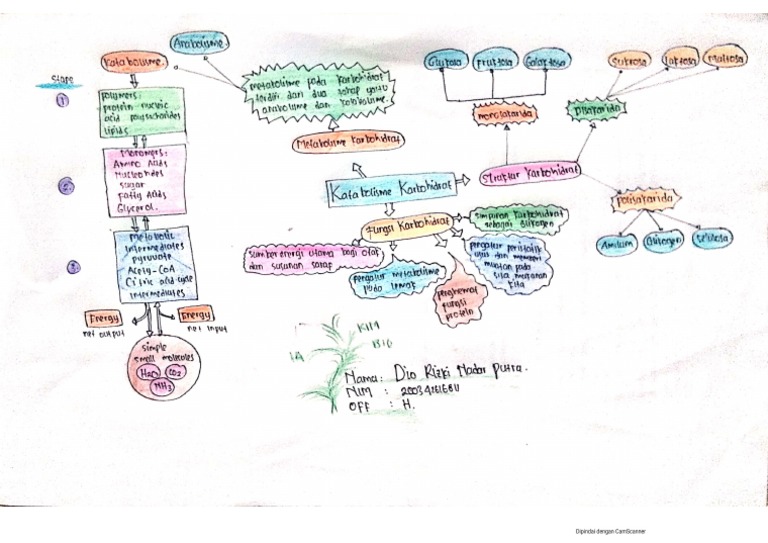 Katabolisme.
Anabolisme.
Stage
1
Polymers:
protein nucleic
acid polysacharides
lipids
2
Monomers:
Amino Acids
Nucleotides
sugar
Fatty Acids
Glycerol.
3
Metabolic
Intermediates
pyruvate
Acety-CoA
Citric acid cycle
Intermediates
Energy
net output
Energy
net input
Simple
small molecules
H2O
CO2
NH3
metabolisme pada karbohidrat
terdiri dari dua tahap yaitu
anabolisme dan katabolisme.
Metabolisme Karbohidrat
Katabolisme Karbohidrat
Struktur Karbohidrat
monosakarida
Glukosa
Fruktosa
Galaktosa
Disakarida
Sukrosa
laktosa
Maltosa
polisakarida
Amilum
Glikogen
Selulosa
Fungsi Karbohidrat
simpanan karbohidrat
sebagai Glikogen
sumber energi utama bagi otak
dan susunan saraf
pengatur metabolisme
pada lemak
penghemat
fungsi
protein
pengatur peristaltik
usus dan memberi
muatan pada
sisa makanan
kita
KIM
BIO
Nama: Dio Rizki Nadar Putra.
NIM :
OFF : H.
Dipindai dengan CamScanner